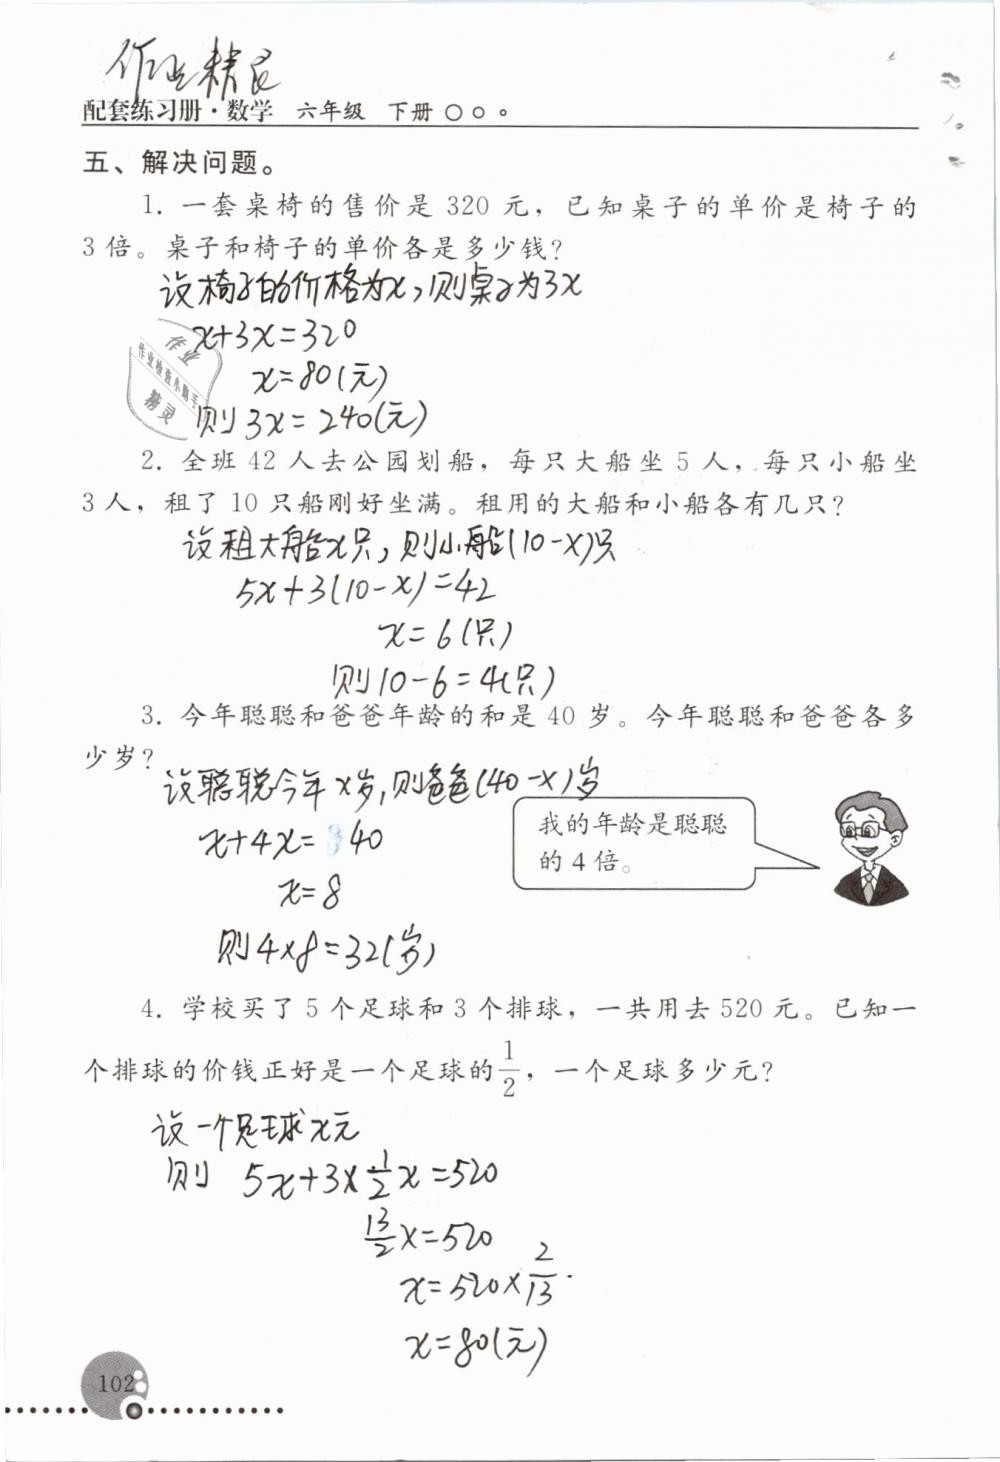 作业精灵
配套练习册·数学 六年级 下册
五、解决问题。
1. 一套桌椅的售价是 320 元，已知桌子的单价是椅子的
3 倍。桌子和椅子的单价各是多少钱？
设椅子的价格为x，则桌子为3x
x+3x=320
x=80(元)
则3x=240(元)
作业
作业检查小助手
精灵
2. 全班 42 人去公园划船，每只大船坐 5 人，每只小船坐
3 人，租了 10 只船刚好坐满。租用的大船和小船各有几只？
设租大船x只，则小船(10-x)只
5x+3(10-x)=42
x=6(只)
则10-6=4(只)
3. 今年聪聪和爸爸年龄的和是 40 岁。今年聪聪和爸爸各多
少岁？
设聪聪今年x岁，则爸爸(40-x)岁
我的年龄是聪聪
的 4 倍。
x+4x=40
x=8
则4×8=32(岁)
4. 学校买了 5 个足球和 3 个排球，一共用去 520 元。已知一
个排球的价钱正好是一个足球的1/2，一个足球多少元？
设一个足球x元
则 5x+3×1/2x=520
13/2x=520
x=520×2/13
x=80(元)
102